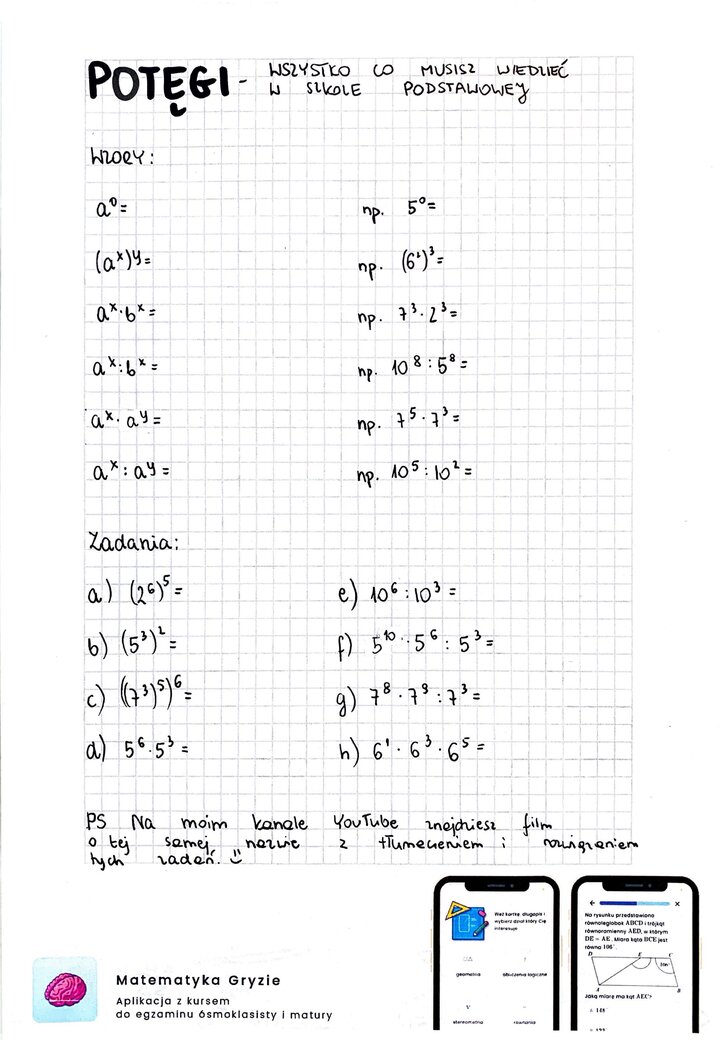 POTĘGI - WSZYSTKO CO MUSISZ WIEDZIEĆ
W SZKOLE PODSTAWOWEJ
WZORY:
a⁰= np. 5⁰=
(aˣ)ʸ= np. (6²)³=
aˣ·bˣ= np. 7³·2³=
aˣ:bˣ= np. 10⁸:5⁸=
aˣ·aʸ= np. 7⁵·7³=
aˣ:aʸ= np. 10⁵:10²=
Zadania:
a) (2⁶)⁵= e) 10⁶:10³=
b) (5³)²= f) 5¹⁰·5⁶:5³=
c) ((7³)⁵)⁶= g) 7⁸·7⁹:7³=
d) 5⁶·5³= h) 6¹·6³·6⁵=
PS Na moim kanale YouTube znajdziesz film
o tej samej nazwie z tłumaczeniem i rozwiązaniem
tych zadań. ☺
Matematyka Gryzie
Aplikacja z kursem
do egzaminu ósmoklasisty i matury
Weź kartkę długopis i
wybierz dział który Cię
interesuje
geometria obliczenia logiczne
stereometria równania
Na rysunku przedstawiono
równoległobok ABCD i trójkąt
równoramienny AED, w którym
DE = AE. Miara kąta BCE jest
równa 106°.
D E C
106°
A B
Jaką miarę ma kąt AEC?
148°